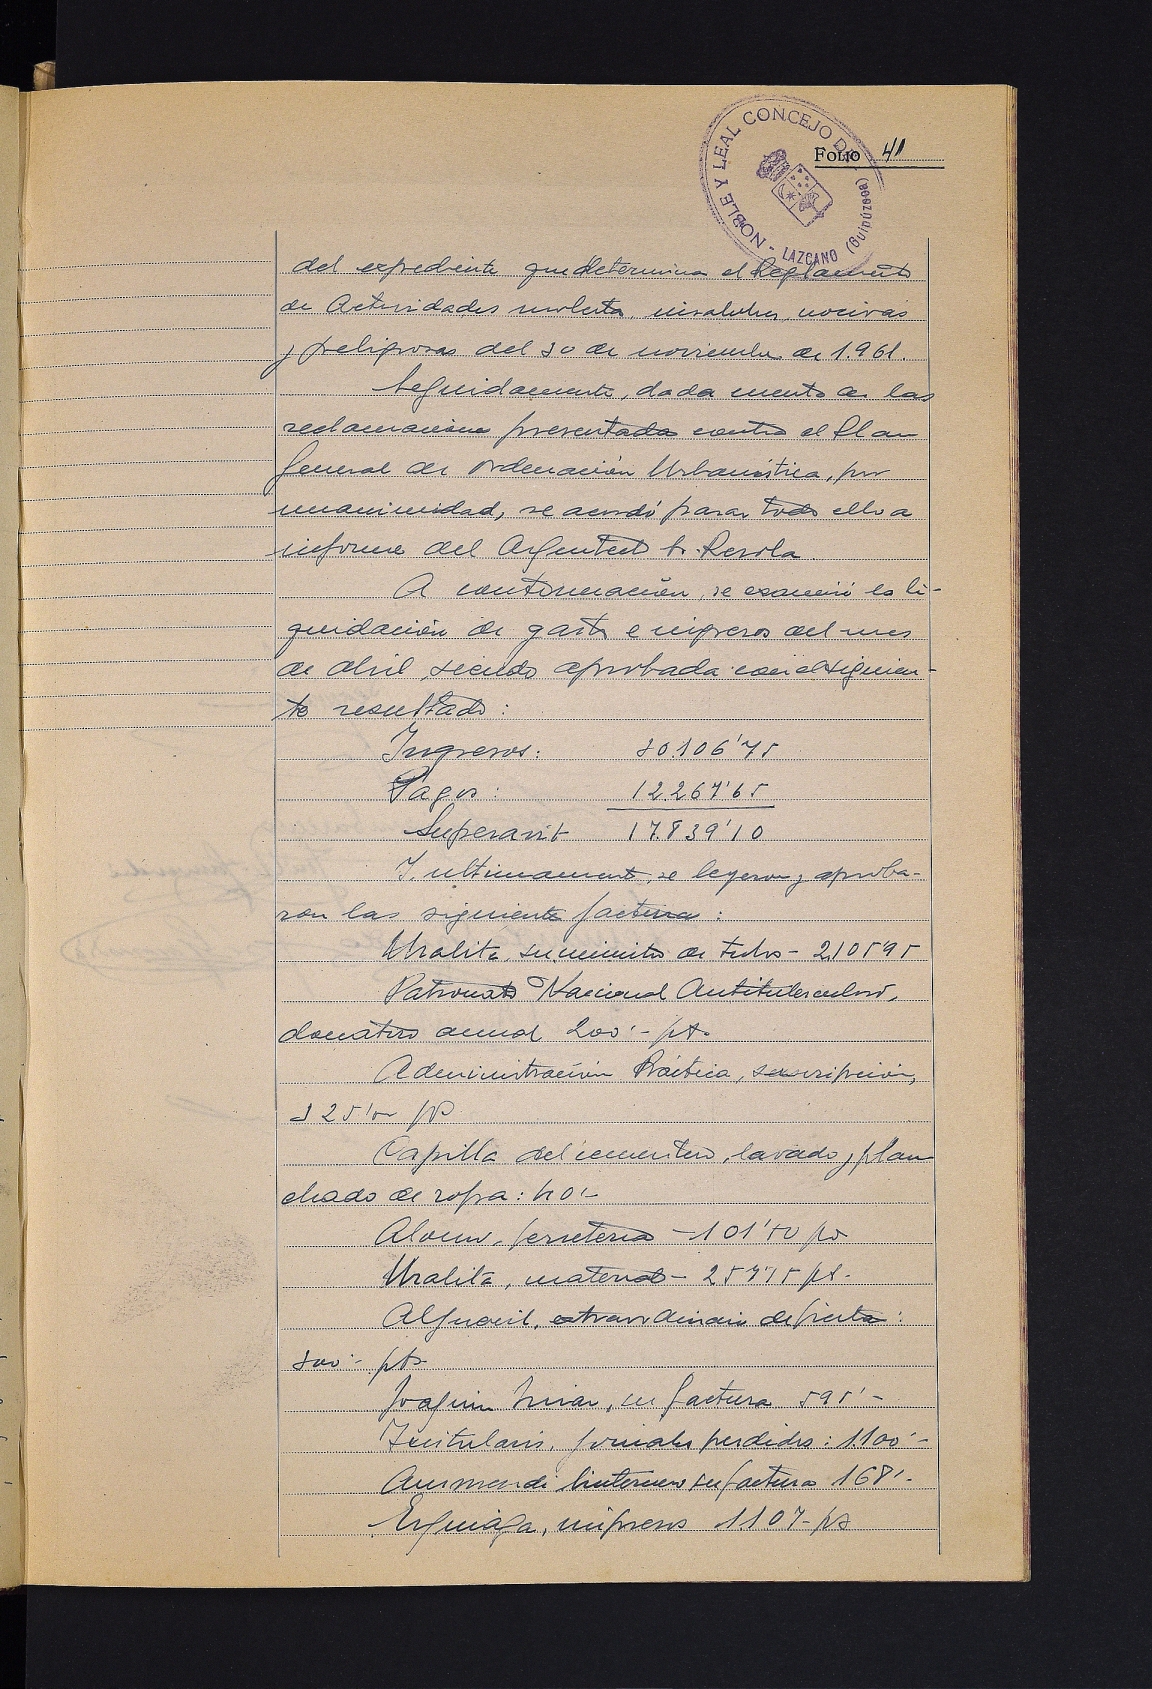 NOBLE Y LEAL CONCEJO DE - LAZCANO (Guipúzcoa)
FOLIO 41
del expediente que determina el Reglamento
de Actividades molestas, insalubres, nocivas
y peligrosas del 30 de noviembre de 1.961.
Seguidamente, dada cuenta de las
reclamaciones presentadas contra el Plan
General de Ordenación Urbanística, por
unanimidad, se acordó pasar todo ello a
informe del Arquitecto Sr.
A continuación, se examinó la li-
quidación de gastos e ingresos del mes
de abril, siendo aprobada con el siguien-
te resultado:
Ingresos: 30.106'75
Pagos: 12.267'65
Superavit 17.839'10
Y ultimamente, se leyeron y aproba-
ron las siguientes facturas:
Uralita, suministro de tubos - 2.105'95
Patronato Nacional Antituberculoso,
donativo anual 200'- pts.
Administración Práctica, suscripción,
325'00 pts
Capilla del cementerio, lavado y plan
chado de ropa: 40'-
ferretería - 101'50 pts
Uralita, material - 257'75 pts.
Alguacil, extraordinario de fiestas:
300'- pts.
Joaquin su factura 595'-
jornales perdidos: 1.100'-
Aurmendi linternero su factura 168'-
Erquiaga, impresos 1.107- pts